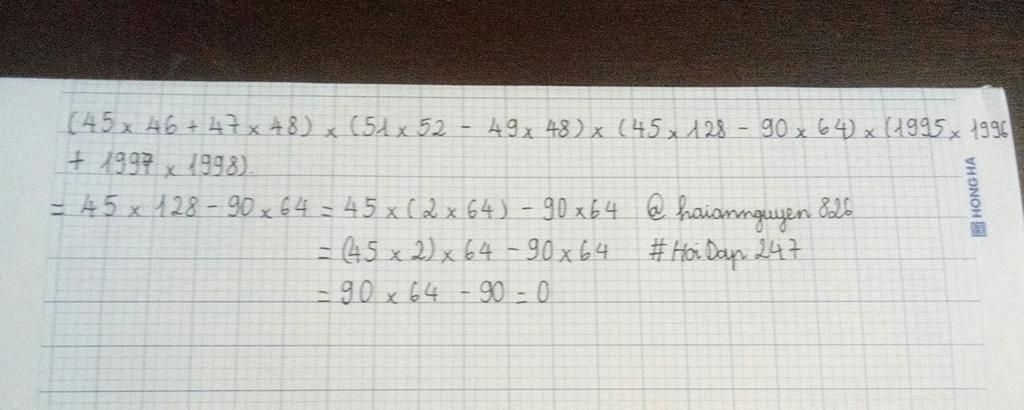 (45 x 46 + 47 x 48) x (51 x 52 - 49 x 48) x (45 x 128 - 90 x 64) x (1995 x 1996
+ 1997 x 1998).
= 45 x 128 - 90 x 64 = 45 x (2 x 64) - 90 x 64 @ haiannguyen 826
= (45 x 2) x 64 - 90 x 64 # Hoi Dap 247
= 90 x 64 - 90 = 0
HONG HA